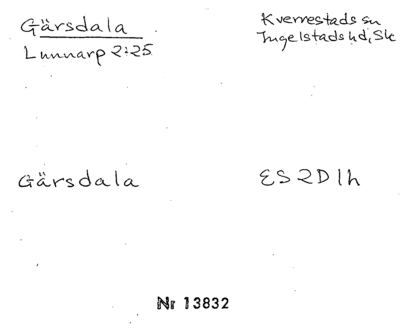 Gärsdala
Kverrestads sn
Lunnarp 2:25
Ingelstads hd, Sk
Gärsdala
ES 2D 1h
Nr 13832